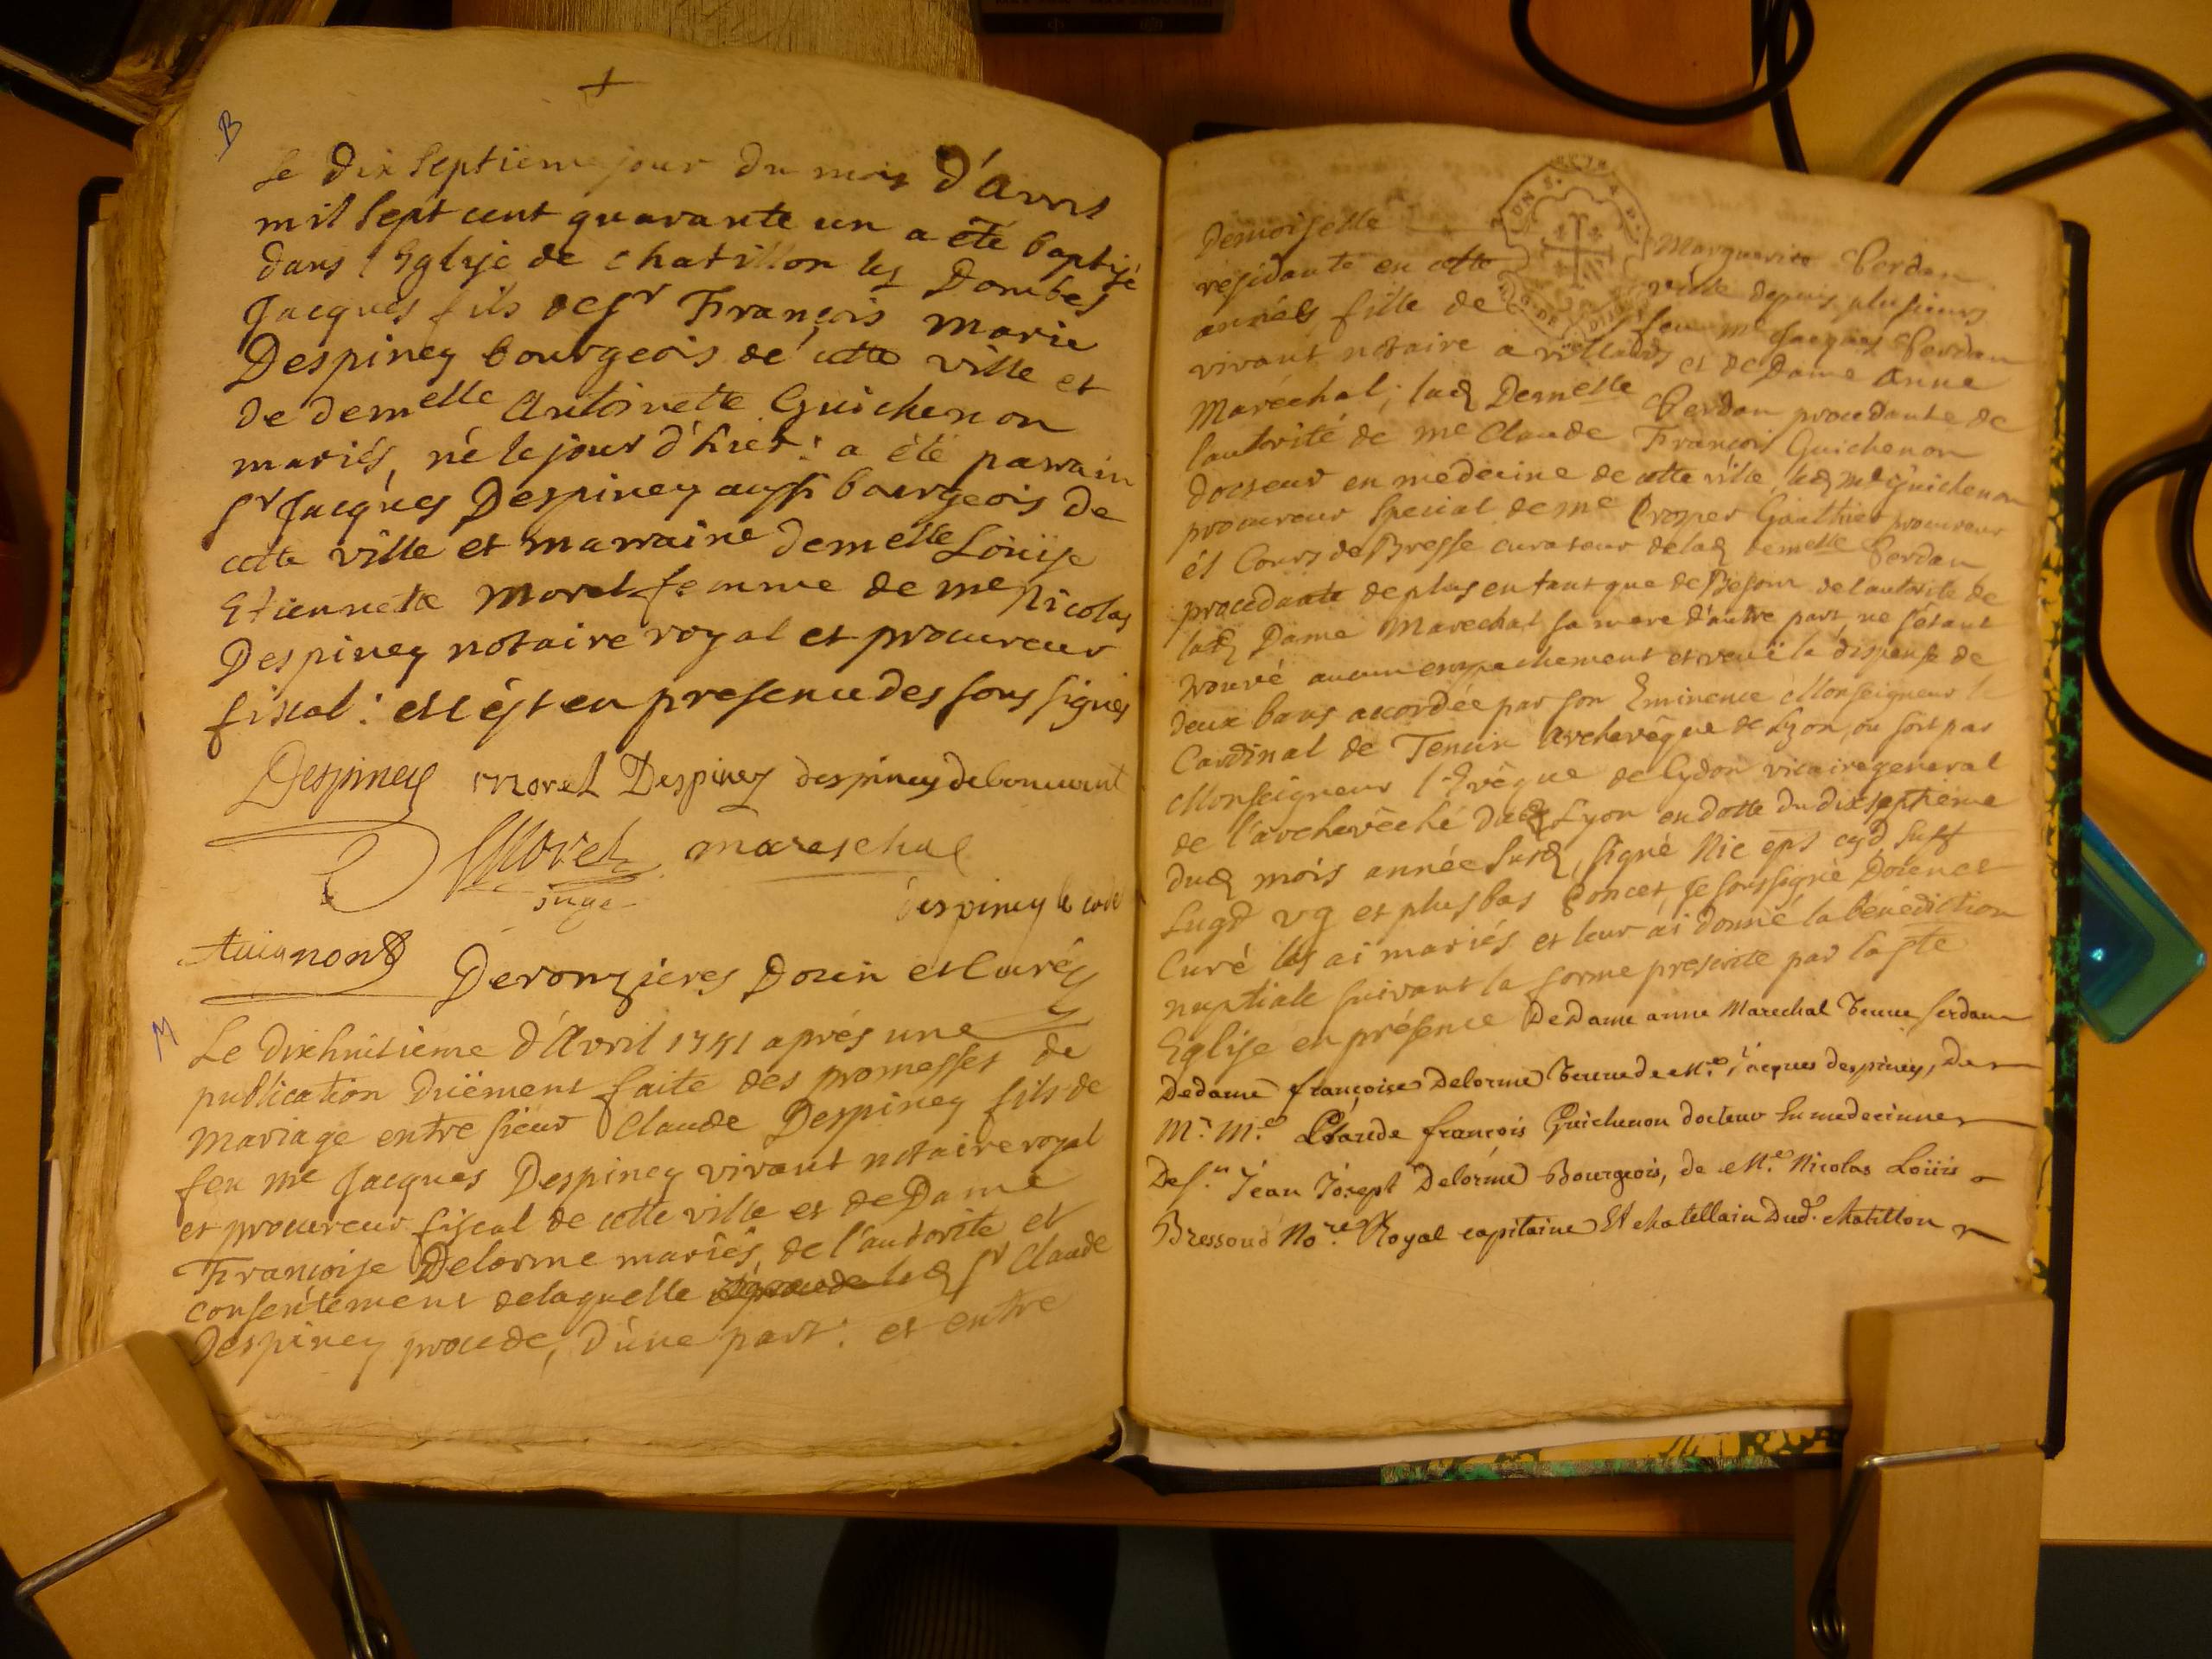 +
B
Le dix septieme jour du mois d'avril
mil sept cent quarante un a été baptisé
dans l'Eglise de chatillon les Dombes
Jacques fils de sr François marie
Despiney bourgeois de cette ville et
de demelle Antoinette Guichenon
mariés, né le jour d'hier : a été parrain
sr Jacques Despiney aussi bourgeois de
cette ville et marraine demelle Loüise
Etiennette morel femme de me Nicolas
Despiney notaire royal et procureur
fiscal : et c'est en presence des sous signés
Despiney morel Despiney despiney
Morel mareschal
juge
despiney le cadet
Deronzieres Doien et Curé
M
Le dixhuitieme d'Avril 1741 aprés une
publication düement faite des promesses de
mariage entre sieur Claude Despiney fils de
feu me Jacques Despiney vivant notaire royal
et procureur fiscal de cette ville et de Dame
Françoise Delorme mariés, de l'autorité et
consentement delaquelle sr Claude
Despiney procede, d'une part : et entre
Demoiselle Marguerite Perdan
residante en cette ville depuis plusieurs
années fille de feu me Jacques Perdan
vivant notaire a villards et de Dame Anne
Maréchal ; lad Demelle Perdan procedante de
l'autorité de me Claude François Guichenon
docteur en medecine de cette ville, led me Guichenon
procureur special de me Prosper Gauthier procureur
és Cours de Bresse curateur de lad demelle Perdan
procedante de plus entant que de Besoin de l'autorité de
lad Dame Marechal sa mere d'autre part, ne s'étant
trouvé aucun empechement et veüe la dispense de
deux bans accordée par son Eminence Monseigneur le
Cardinal de Tencin Archevêque de Lyon, ou soit par
Monseigneur l'Evêque de Cydon vicaire general
de l'archevêché dud Lyon en datte du dixseptieme
dud mois année susd, signé Nic eps cyd suff
Lugd vg et plus bas Poncet, Je soussigné Doien et
Curé les ai mariés et leur ai donné la benédiction
nuptiale suivant la forme prescrite par la ste
Eglise en présence De Dame anne Marechal veuve ferdan
De dame françoise Delorme veuve de Me Jacques despiney, De
Mr Me Claude françois Guichenon docteur En medecinne
De sr Jean Joseph Delorme Bourgeois, de Me Nicolas Loüis
Bressoud Nore Royal capitaine Et chatellain Dud. chatillon